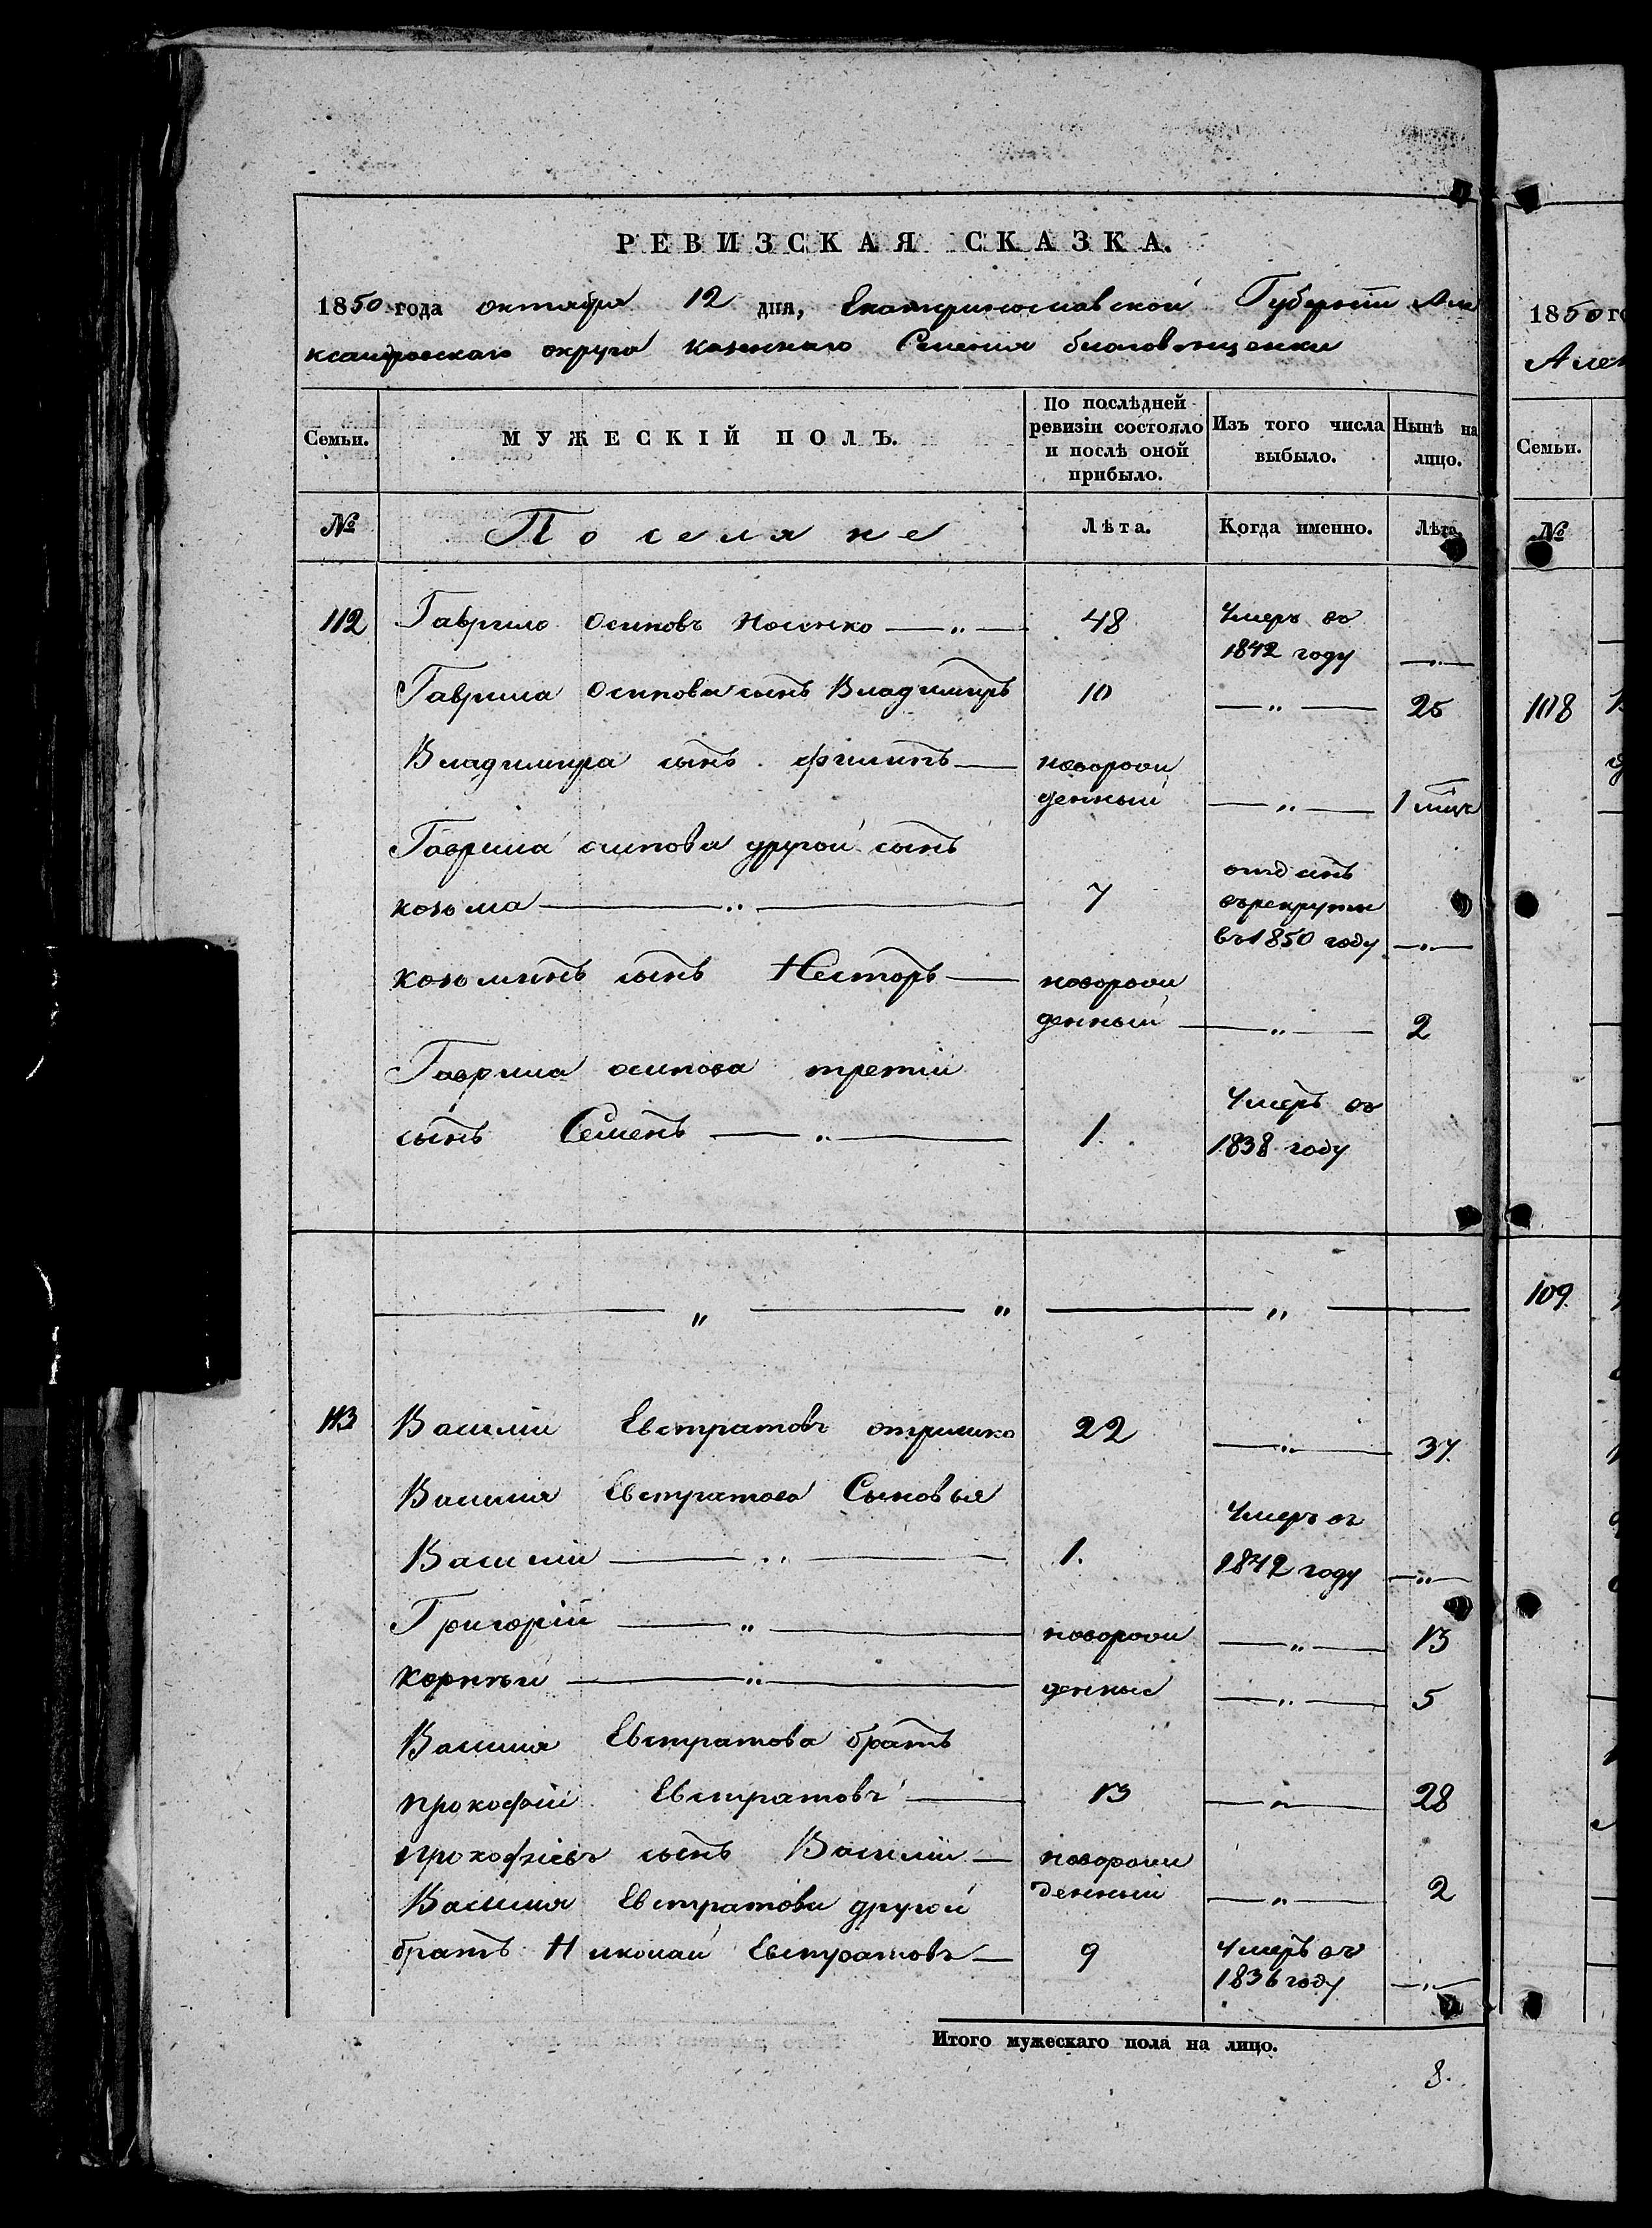 РЕВИЗСКАЯ СКАЗКА.
1850 года октября 12 дня, Екатеринославской Губернии Але
ксандровскаго округа казеннаго Селения благовещенки
Семьи. МУЖЕСКІЙ ПОЛЪ. По послѣдней ревизіи состояло и послѣ оной прибыло. Изъ того числа выбыло. Нынѣ на лицо.
№ Поселяне Лѣта. Когда именно. Лѣта.
112 Гаврило Осиповъ Носенко — „ — 48 Умеръ въ
1842 году — „ —
Гаврила Осипова сынъ Владимиръ 10 — „ — 25
Владимира сынъ филипъ — новорож
денный — „ — 1 мцъ
Гаврила осипова другой сынъ
козьма — „ — 7 отданъ
върекруты
въ 1850 году — „ —
козьминъ сынъ Несторъ — новорож
денный — „ — 2
Гаврила осипова третий
сынъ Семенъ — „ — 1. Умеръ въ
1838 году
— „ — „ — „ —
113 Василий Евстратовъ отришко 22 — „ — 37.
Василия Евстратова Сыновья
Василий — „ — 1. Умеръ въ
1842 году — „ —
Григорій — „ — новорож — „ — 13
корнѣй — „ — денные — „ — 5
Василия Евстратова братъ
прокофий Евстратовъ — 13 — „ — 28
прокофиевъ сынъ Василий — новорож
денный — „ — 2
Василия Евстратова другой
братъ Николай Евстратовъ — 9 Умеръ въ
1836 году — „ —
Итого мужескаго пола на лицо.
8.
1850 го
Алек
Семьи.
№
108
109